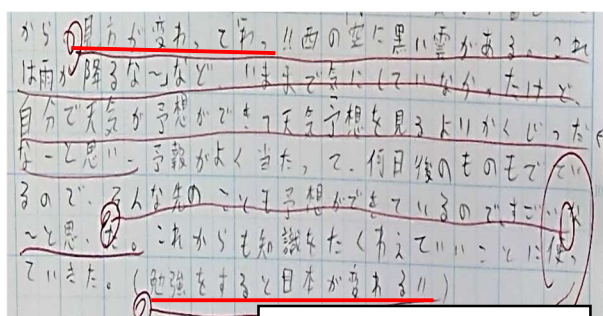 から見方が変わって、「西の空に黒い雲がある。これ
は雨が降るな～」など、いままで気にしていなかったけど、
自分で天気が予想ができて天気予想を見るよりかくじつだ
なーと思い、予報がよく当たって、何日後のものもでてい
るので、そんな先のことも予想ができているのですごいな
～と思った。これからも知識をたくわえていいことに使っ
ていきた。(勉強をすると日本が変わる!!)